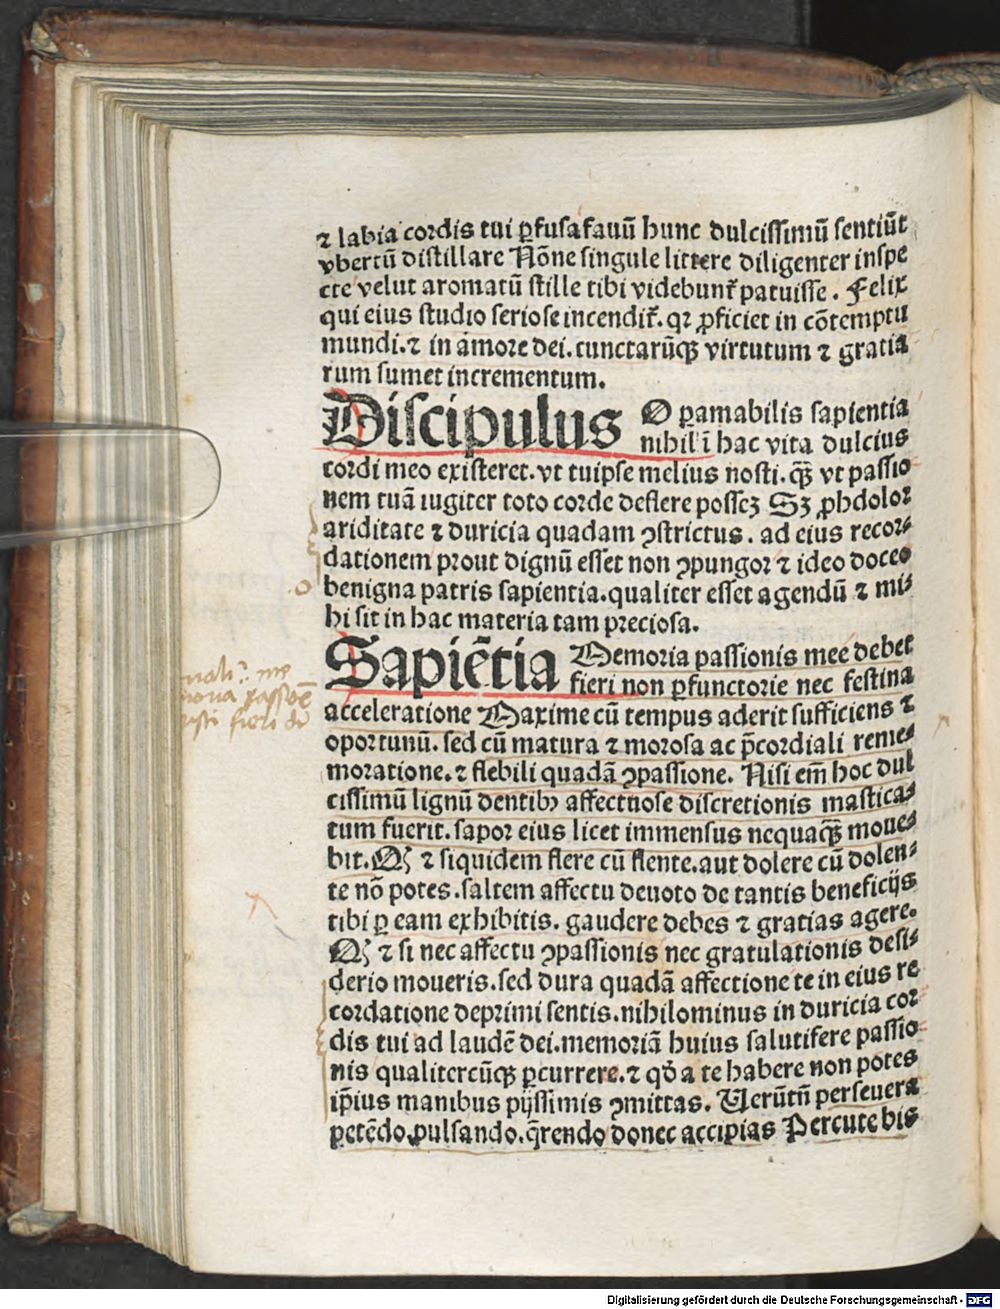 ⁊ labia cordis tui ꝑfusa fauū hunc dulcissimū sentiūt
vbertū distillare Nōne singule littere diligenter inspe
cte velut aromatū stille tibi videbunt᷑ patuisse. Felix
qui eius studio seriose incendit᷑. qꝛ ꝓficiet in cōtemptu
mundi. ⁊ in amore dei. cunctarūqꝫ virtutum ⁊ gratia
rum sumet incrementum.
Discipulus O ꝑamabilis sapientia
nihil ī hac vita dulcius
cordi meo existeret. vt tuipse melius nosti. qꝫ̄ vt passio
nem tuā iugiter toto corde deflere posseꝫ Sꝫ ꝓhdolor
ariditate ⁊ duricia quadam ꝯstrictus. ad eius recor⸗
dationem prout dignū esset non ꝯpungor ⁊ ideo doceo
benigna patris sapientia. qualiter esset agendū ⁊ mi⸗
hi sit in hac materia tam preciosa.
Sapiētia Memoria passionis mee debet
fieri non ꝑfunctorie nec festina
acceleratione Maxime cū tempus aderit sufficiens ⁊
oportunū. sed cū matura ⁊ morosa ac p̄cordiali reme⸗
moratione. ⁊ flebili quadā ꝯpassione. Nisi em̄ hoc dul
cissimū lignū dentibꝰ affectuose discretionis mastica⸗
tum fuerit. sapor eius licet immensus nequaqꝫ̄ moue⸗
bit. Qꝫ ⁊ siquidem flere cū flente. aut dolere cū dolen⸗
te nō potes. saltem affectu deuoto de tantis beneficijs
tibi ꝑ eam exhibitis. gaudere debes ⁊ gratias agere.
Qꝫ ⁊ si nec affectu ꝯpassionis nec gratulationis desi⸗
derio moueris. sed dura quadā affectione te in eius re
cordatione deprimi sentis. nihilominus in duricia cor
dis tui ad laudē dei. memoriā huius salutifere passio⸗
nis qualitercūqꝫ ꝑcurrere. ⁊ qd̄ a te habere non potes
ip̄ius manibus pijssimis ꝯmittas. Uerūtn̄ perseuera
petēdo, pulsando. q̄rendo donec accipias Percute bis
Digitalisierung gefördert durch die Deutsche Forschungsgemeinschaft - DFG